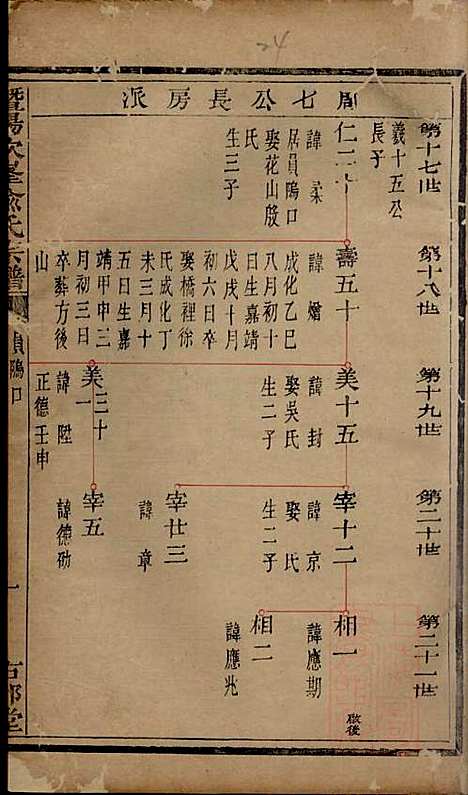 周七公長房派
第十七世
第十八世
第十九世
第二十世
第二十一世
義十五公
長子
仁二十
諱柔
居員隖口
娶花山殷
氏
生三子
壽五十
諱燴
成化乙巳
八月初十
日生嘉靖
戊戌十月
初六日卒
娶橋裡徐
氏成化丁
未三月十
五日生嘉
靖甲申三
月初三日
卒葬方後
山
美十五
諱封
娶吳氏
生二子
美三十
一
諱陞
正德壬申
宰十二
諱京
娶 氏
生二子
宰廿三
諱章
宰五
諱德劭
相一
諱應期
啟後
相二
諱應兆
暨陽次峯俞氏宗譜
隖口
一
右鄰堂
24